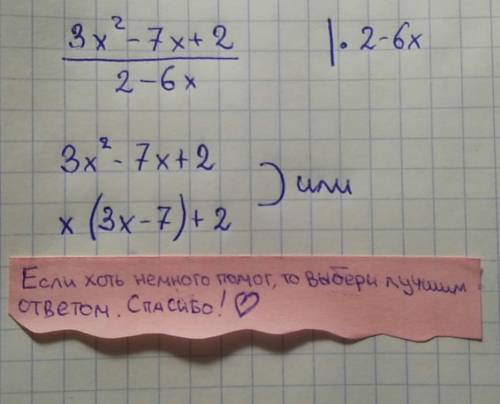 3x² - 7x + 2 |· 2 - 6x
2 - 6x
3x² - 7x + 2
) или
x (3x - 7) + 2
Если хоть немного помог, то выбери лучшим
ответом. Спасибо! ♡